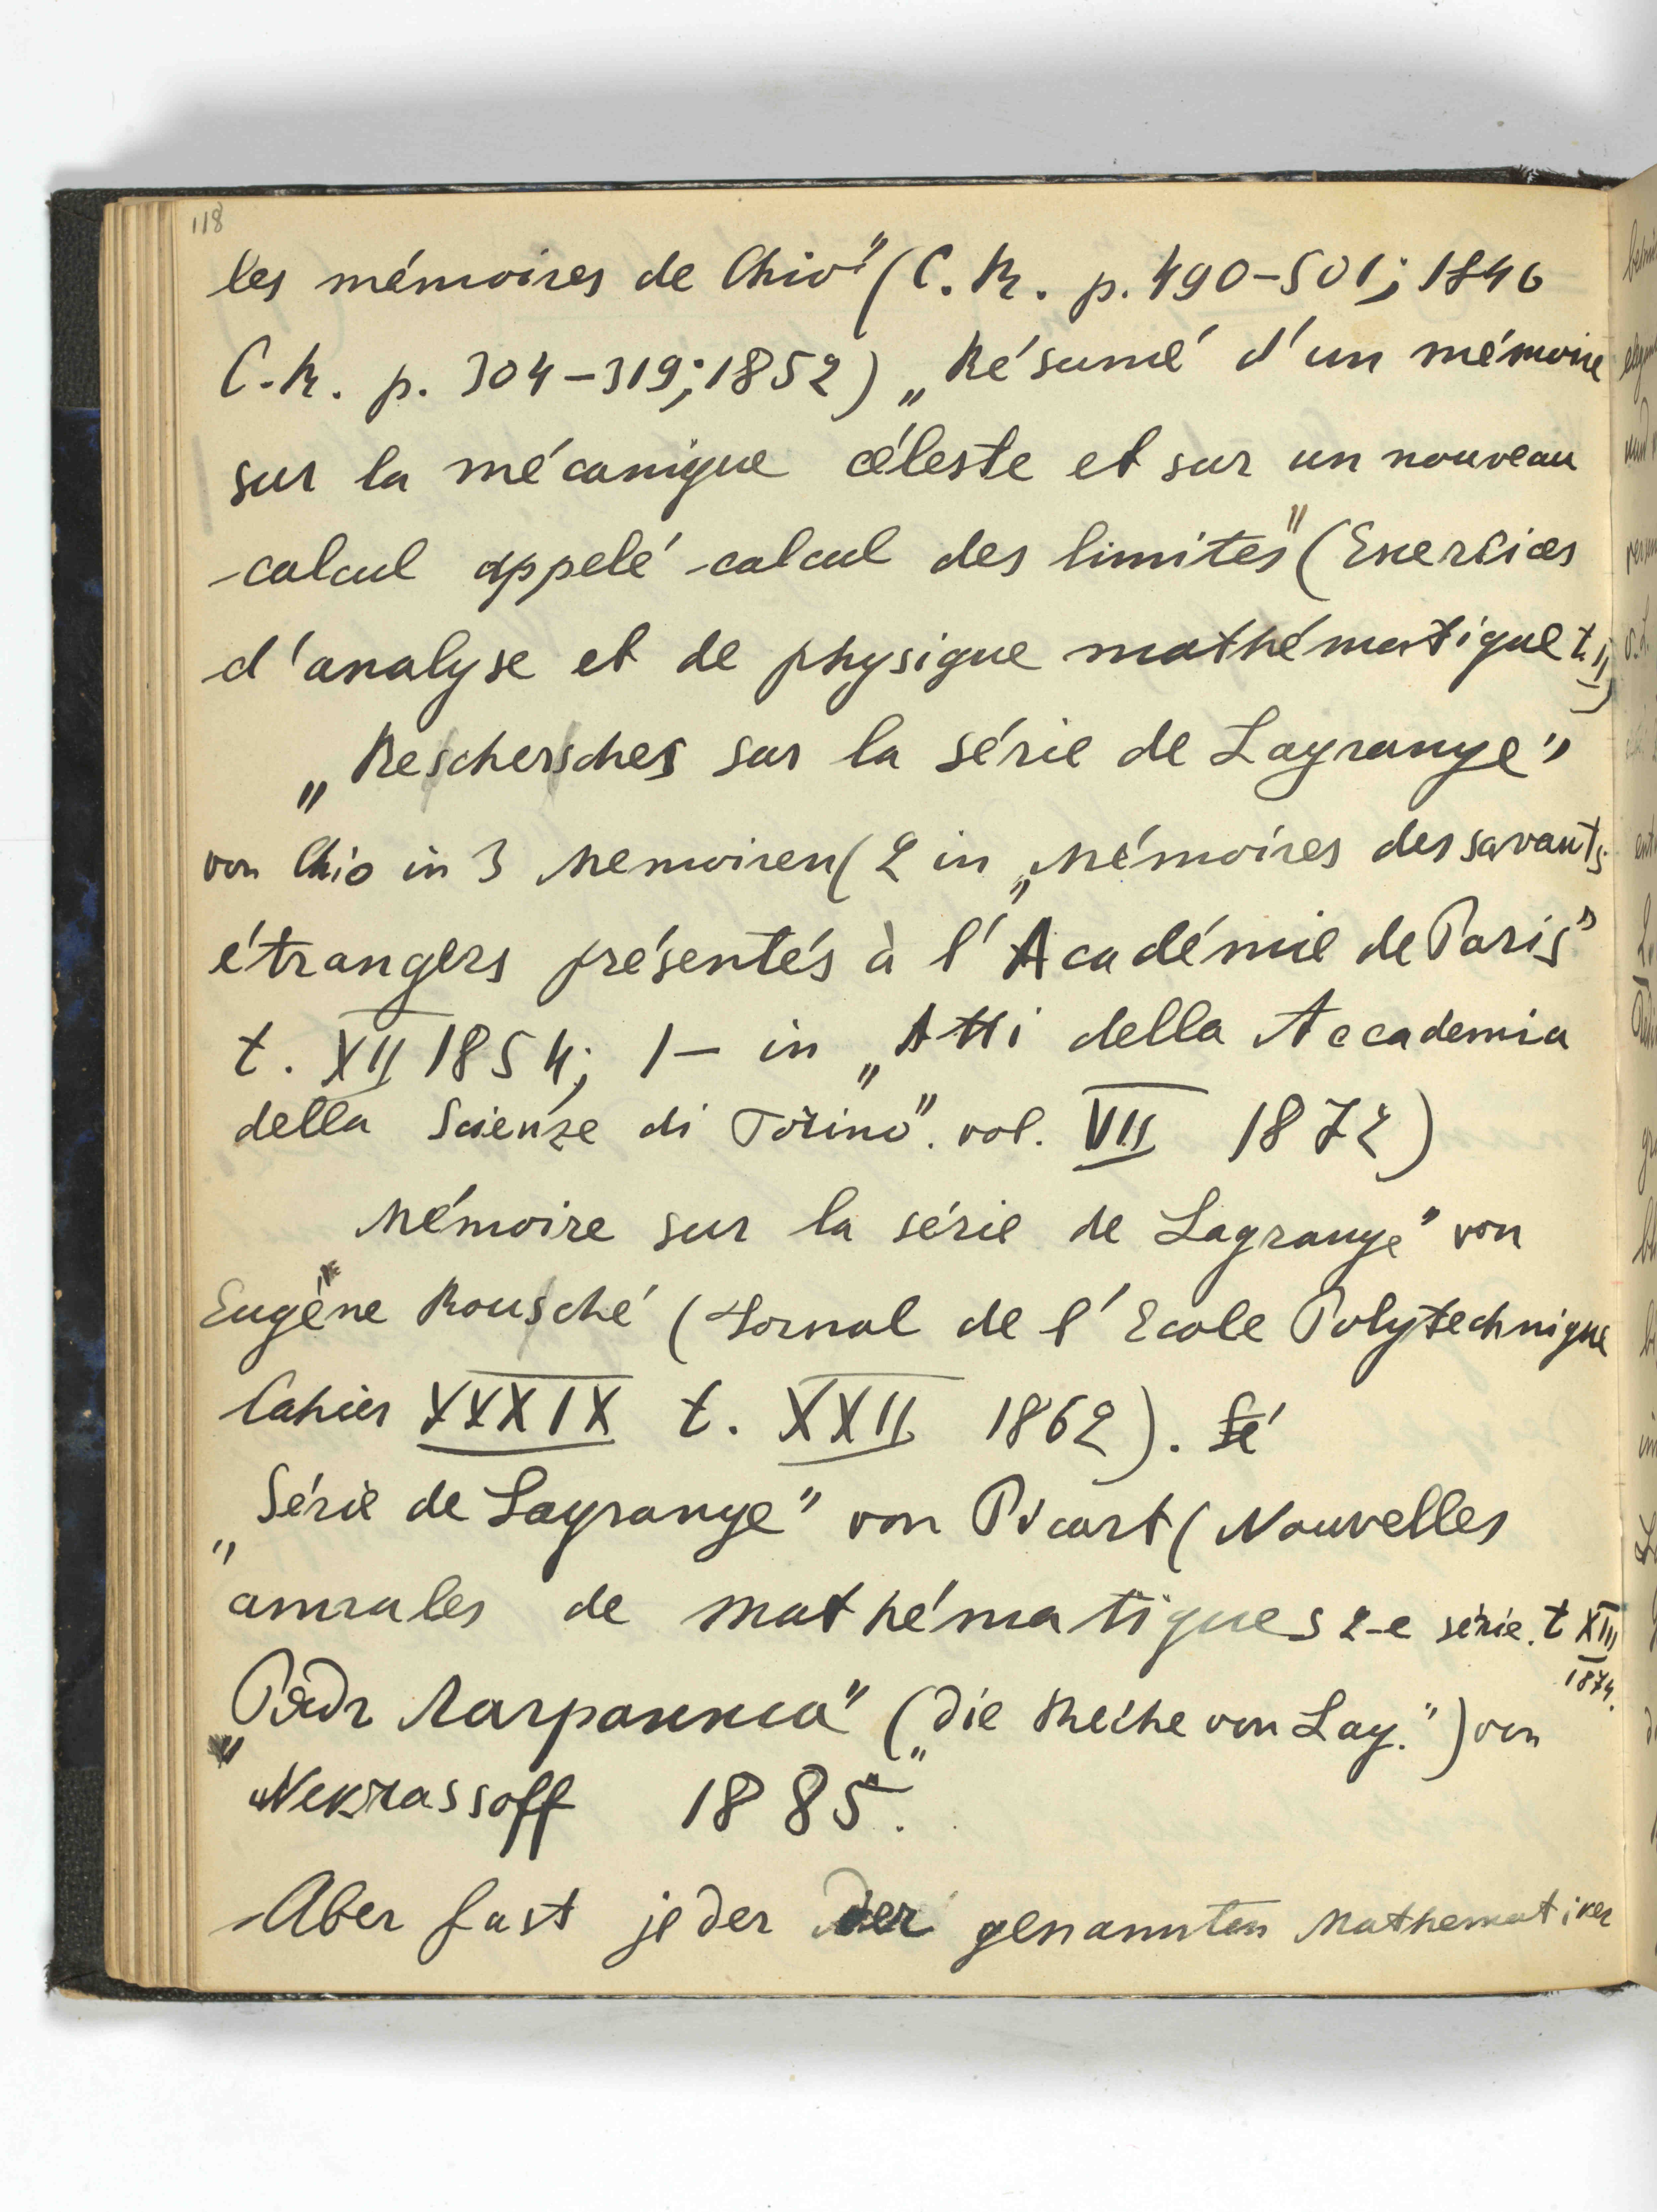 118
les mémoires de Chio" (C. R. p. 490-501; 1846
C.R. p. 304-319; 1852) „Résumé d'un mémoire
sur la mécanique céleste et sur un nouveau
calcul appelé calcul des limites" (Exercices
d'analyse et de physique mathématique t. II)
„Recherches sur la série de Lagrange"
von Chio in 3 Memoiren (2 in „Mémoires des savants
étrangers présentés à l'Académie de Paris"
t. XII 1854; 1- in „Atti della Accademia
della Scienze di Torino". vol. VII 1872)
Mémoire sur la série de Lagrange" von
Eugène Rouché (Jornal de l'Ecole Polytechnique
Cahier XXXIX t. XXII 1862). Sé
„Série de Lagrange" von Picart (Nouvelles
annales de mathématiques 2-e série. t XIII
1874.
„Рядъ Лагранжа" („Die Reihe von Lag.") von
Nekrassoff 1885.
Aber fast jeder der genannten Mathematiker